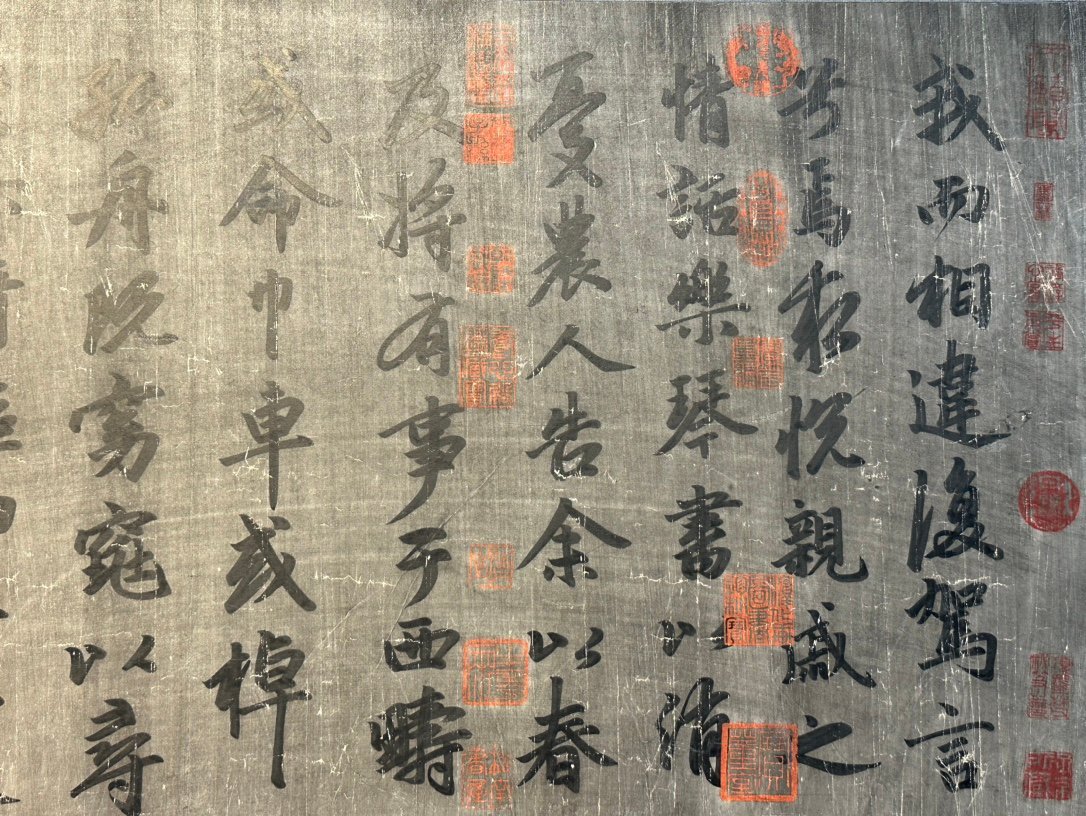 我而相違復駕言
兮焉求悅親戚之
情話樂琴書以消
憂農人告余以春
及將有事于西疇
或命巾車或棹
孤舟既窈窕以尋